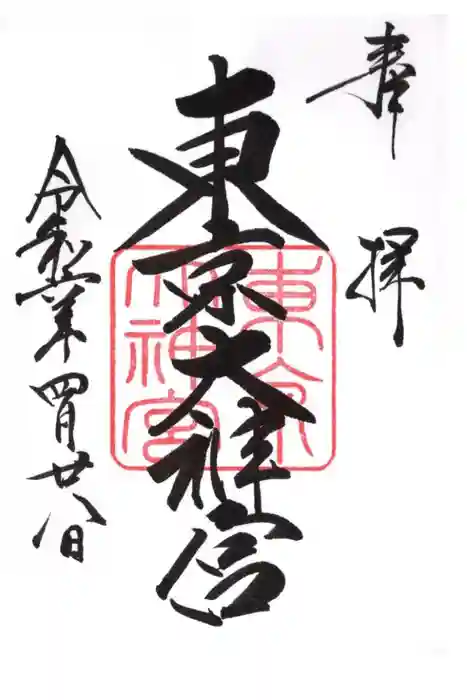 奉拝
東京大神宮
令和 年四月廿八日
東京
大神宮